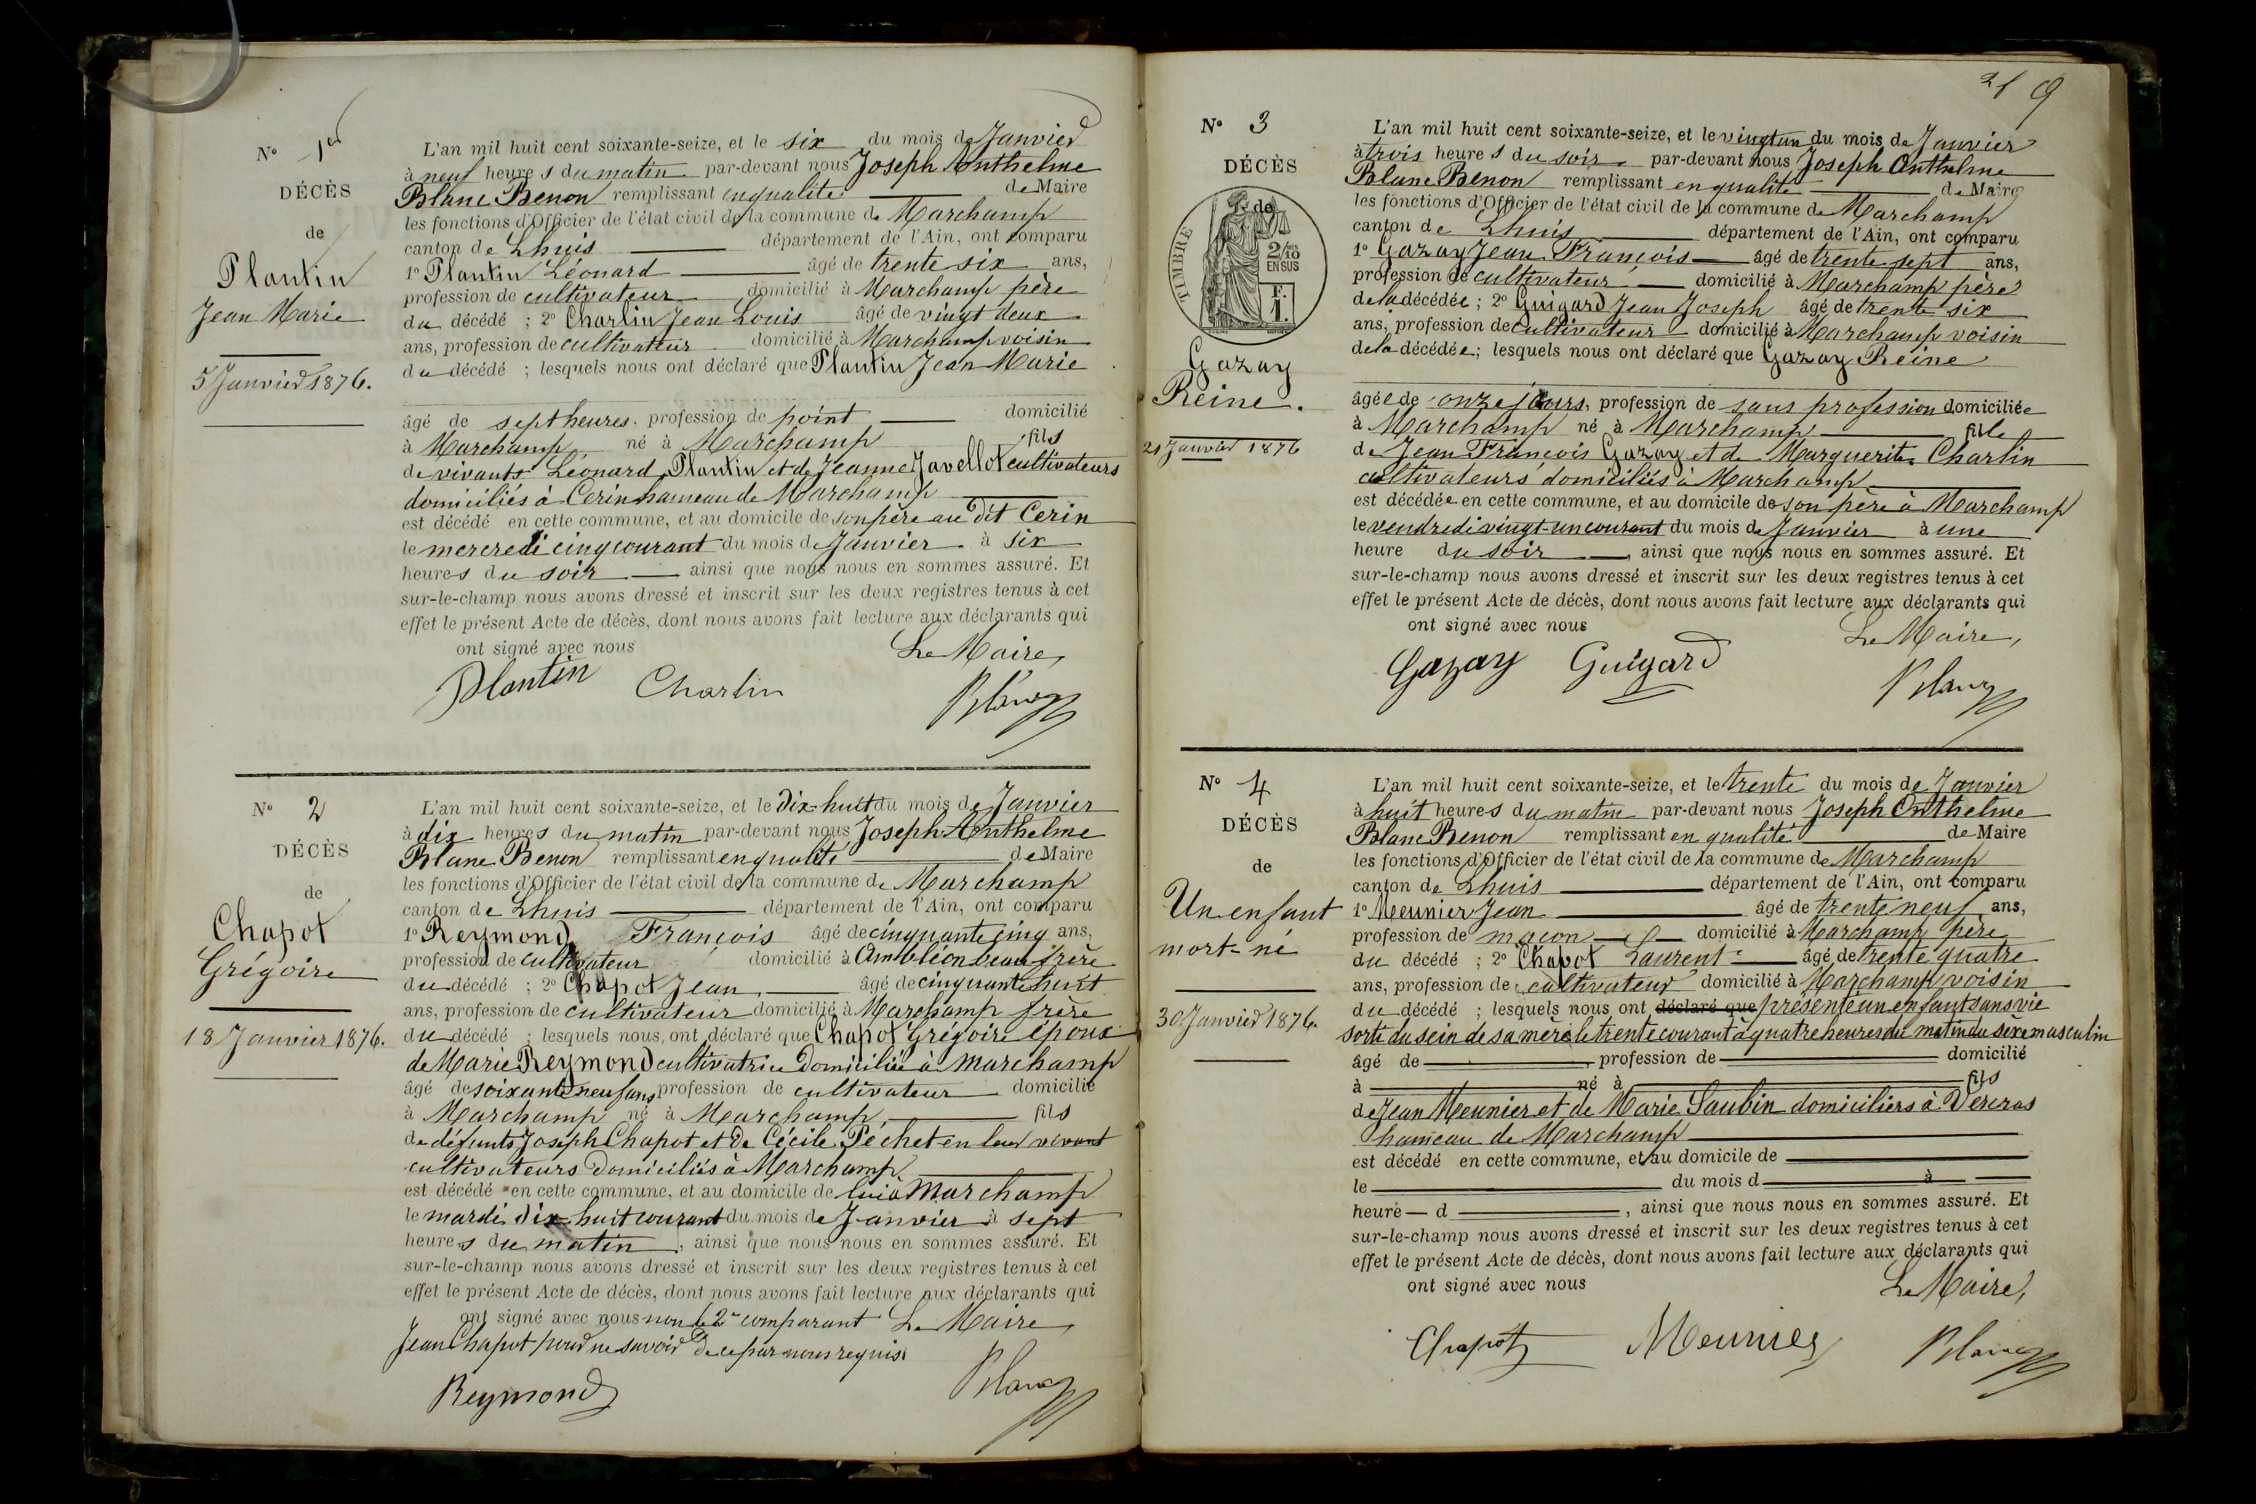 N° 1er
DÉCÈS
de
Plantin
Jean Marie
5 Janvier 1876.
L'an mil huit cent soixante-seize, et le six du mois de Janvier
à neuf heures du matin par-devant nous Joseph Anthelme
Blanc Benon remplissant en qualité de Maire
les fonctions d'Officier de l'état civil de la commune de Marchamp
canton de Lhuis département de l'Ain, ont comparu
1° Plantin Léonard âgé de trente six ans,
profession de cultivateur domicilié à Marchamp père
du décédé ; 2° Charlin Jean Louis âgé de vingt deux
ans, profession de cultivateur domicilié à Marchamp voisin
du décédé ; lesquels nous ont déclaré que Plantin Jean Marie
âgé de sept heures, profession de point domicilié
à Marchamp né à Marchamp fils
de vivants Léonard Plantin et de Jeanne Javellot cultivateurs
domiciliés à Cerin hameau de Marchamp
est décédé en cette commune, et au domicile de son père au dit Cerin
le mercredi cinq courant du mois de Janvier à six
heures du soir ainsi que nous nous en sommes assuré. Et
sur-le-champ nous avons dressé et inscrit sur les deux registres tenus à cet
effet le présent Acte de décès, dont nous avons fait lecture aux déclarants qui
ont signé avec nous Le Maire,
Plantin Charlin Blanc
N° 2
DÉCÈS
de
Chapot
Grégoire
18 Janvier 1876.
L'an mil huit cent soixante-seize, et le dix-huit du mois de Janvier
à dix heures du matin par-devant nous Joseph Anthelme
Blanc Benon remplissant en qualité de Maire
les fonctions d'Officier de l'état civil de la commune de Marchamp
canton de Lhuis département de l'Ain, ont comparu
1° Reymond François âgé de cinquante cinq ans,
profession de cultivateur domicilié à Ambléon beau frère
du décédé ; 2° Chapot Jean âgé de cinquante huit
ans, profession de cultivateur domicilié à Marchamp frère
du décédé ; lesquels nous ont déclaré que Chapot Grégoire époux
de Marie Reymond cultivatrice domiciliée à Marchamp
âgé de soixante neuf ans profession de cultivateur domicilié
à Marchamp né à Marchamp, fils
de défunts Joseph Chapot et de Cécile Péchet en leur vivant
cultivateurs domiciliés à Marchamp
est décédé en cette commune, et au domicile de lui à Marchamp
le mardi dix-huit courant du mois de Janvier à sept
heures du matin, ainsi que nous nous en sommes assuré. Et
sur-le-champ nous avons dressé et inscrit sur les deux registres tenus à cet
effet le présent Acte de décès, dont nous avons fait lecture aux déclarants qui
ont signé avec nous non le 2e comparant Le Maire,
Jean Chapot pour ne savoir de ce par nous requis.
Reymond Blanc
21 9
N° 3
DÉCÈS
de
TIMBRE
2/10
EN SUS
F.
1.
Gazay
Reine.
21 Janvier 1876
L'an mil huit cent soixante-seize, et le vingt un du mois de Janvier
à trois heures du soir par-devant nous Joseph Anthelme
Blanc Benon remplissant en qualité de Maire
les fonctions d'Officier de l'état civil de la commune de Marchamp
canton de Lhuis département de l'Ain, ont comparu
1° Gazay Jean François âgé de trente sept ans,
profession de cultivateur domicilié à Marchamp père
de la décédée ; 2° Guigard Jean Joseph âgé de trente six
ans, profession de cultivateur domicilié à Marchamp voisin
de la décédée ; lesquels nous ont déclaré que Gazay Reine
âgée de onze jours, profession de sans profession domiciliée
à Marchamp né à Marchamp fille
de Jean François Gazay et de Marguerite Charlin
cultivateurs domiciliés à Marchamp
est décédée en cette commune, et au domicile de son père à Marchamp
le vendredi vingt-un courant du mois de Janvier à une
heure du soir, ainsi que nous nous en sommes assuré. Et
sur-le-champ nous avons dressé et inscrit sur les deux registres tenus à cet
effet le présent Acte de décès, dont nous avons fait lecture aux déclarants qui
ont signé avec nous Le Maire,
Gazay Guigard Blanc
N° 4
DÉCÈS
de
Un enfant
mort-né
30 Janvier 1876.
L'an mil huit cent soixante-seize, et le trente du mois de Janvier
à huit heures du matin par-devant nous Joseph Anthelme
Blanc Benon remplissant en qualité de Maire
les fonctions d'Officier de l'état civil de la commune de Marchamp
canton de Lhuis département de l'Ain, ont comparu
1° Meunier Jean âgé de trente neuf ans,
profession de maçon domicilié à Marchamp père
du décédé ; 2° Chapot Laurent âgé de trente quatre
ans, profession de cultivateur domicilié à Marchamp voisin
du décédé ; lesquels nous ont déclaré que présenté un enfant sans vie
sorti du sein de sa mère le trente courant à quatre heures du matin du sexe masculin
âgé de profession de domicilié
à né à fils
de Jean Meunier et de Marie Saubin domiciliers à Vercras
hameau de Marchamp
est décédé en cette commune, et au domicile de
le du mois d à
heure d , ainsi que nous nous en sommes assuré. Et
sur-le-champ nous avons dressé et inscrit sur les deux registres tenus à cet
effet le présent Acte de décès, dont nous avons fait lecture aux déclarants qui
ont signé avec nous Le Maire,
Chapot Meunier Blanc